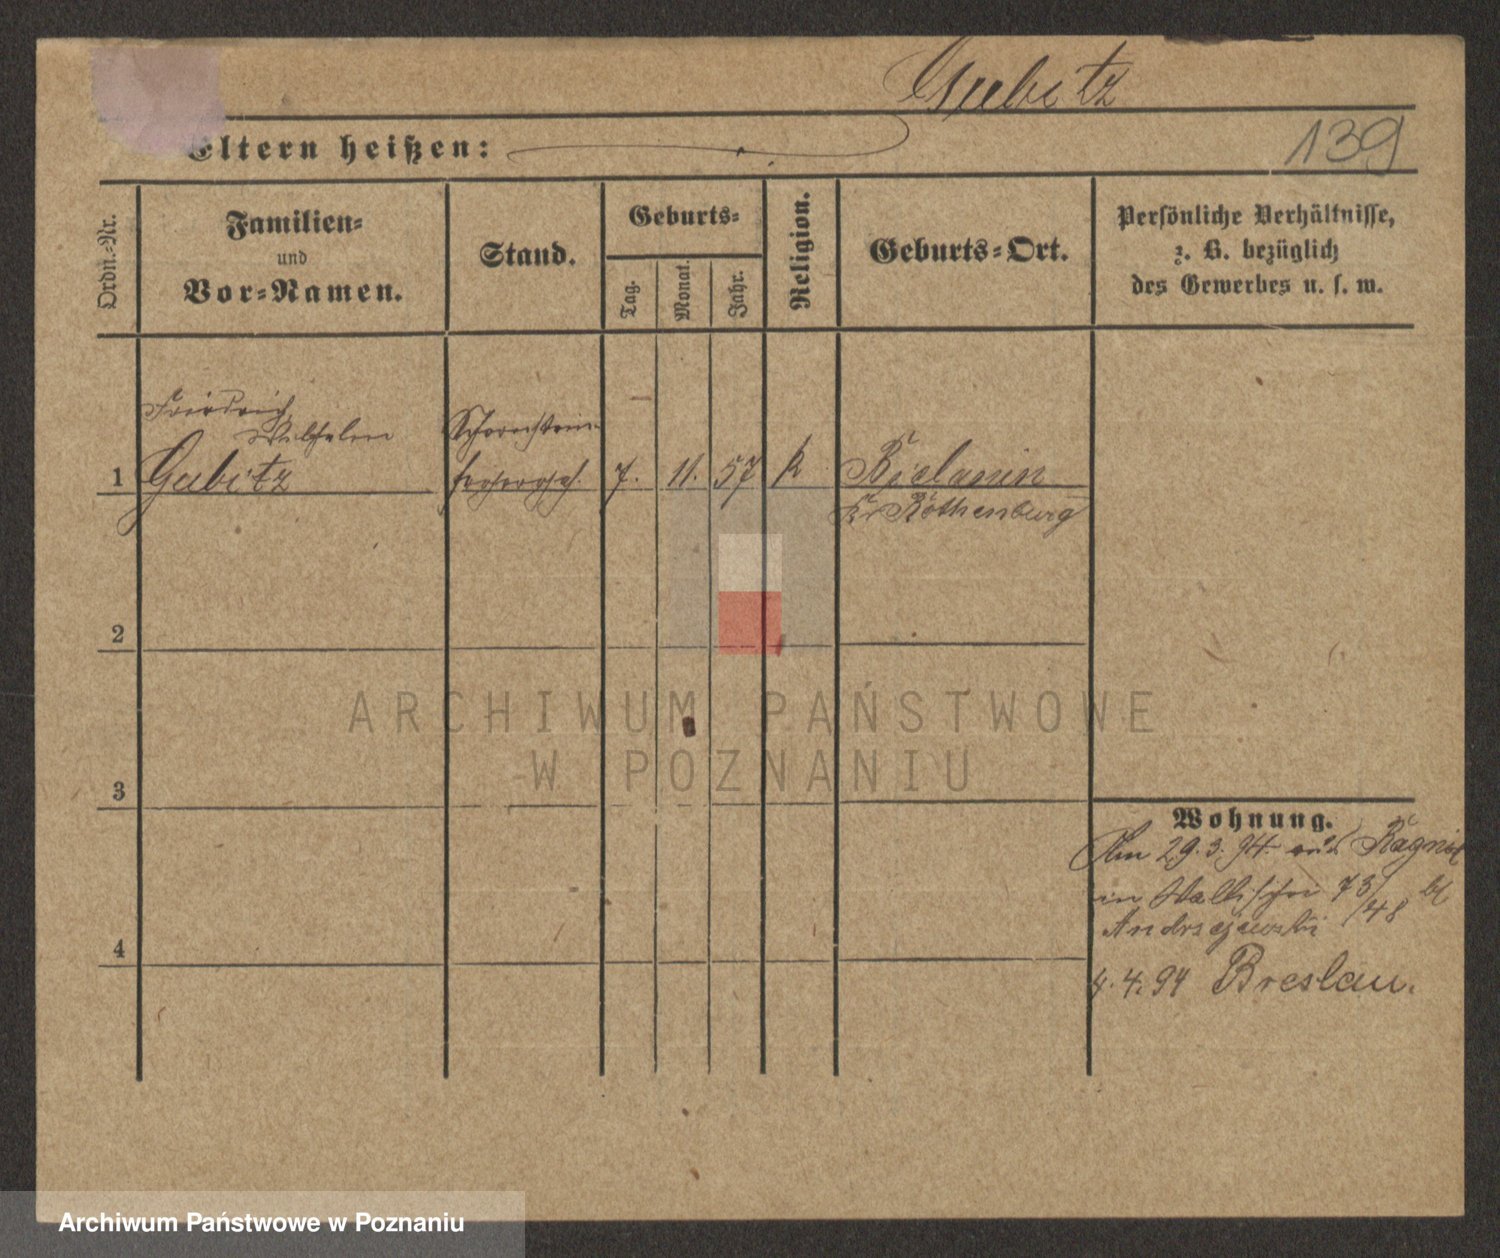 Gubitz
Eltern heißen:
139
Ordn.-Nr.
Familien-
und
Vor-Namen.
Stand.
Geburts-
Tag.
Monat.
Jahr.
Religion.
Geburts-Ort.
Persönliche Verhältnisse,
z. B. bezüglich
des Gewerbes u. s. w.
Friedrich
Wilhelm
1 Gubitz
Schornstein-
fegergeh.
7. 11. 57 k
Bielawin
Kr Rothenburg
2
3
4
Wohnung.
Am 29.3.94 aus Ragnit
in Wallischei 73/ bl
Andrzejewski /48
4.4.94 Breslau.
ARCHIWUM PAŃSTWOWE
W POZNANIU
Archiwum Państwowe w Poznaniu